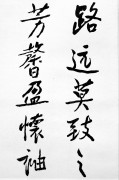 路远莫致之
芳馨盈懷袖